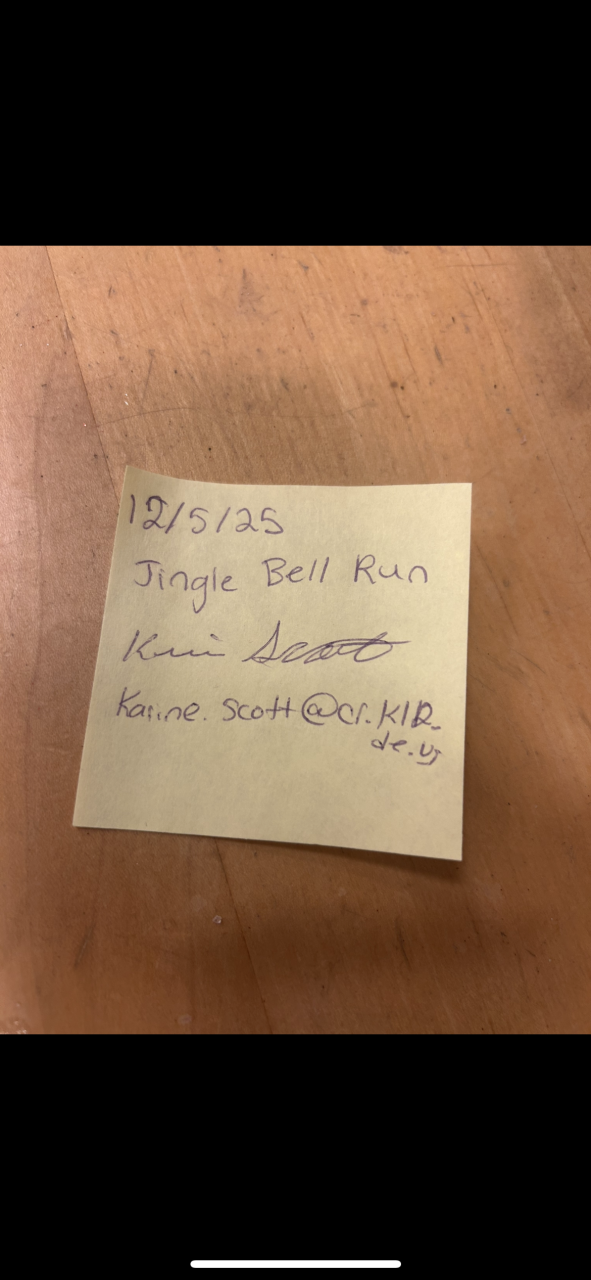 12/5/25
Jingle Bell Run
Scott
Karine.Scott@cr.K12.
de.us